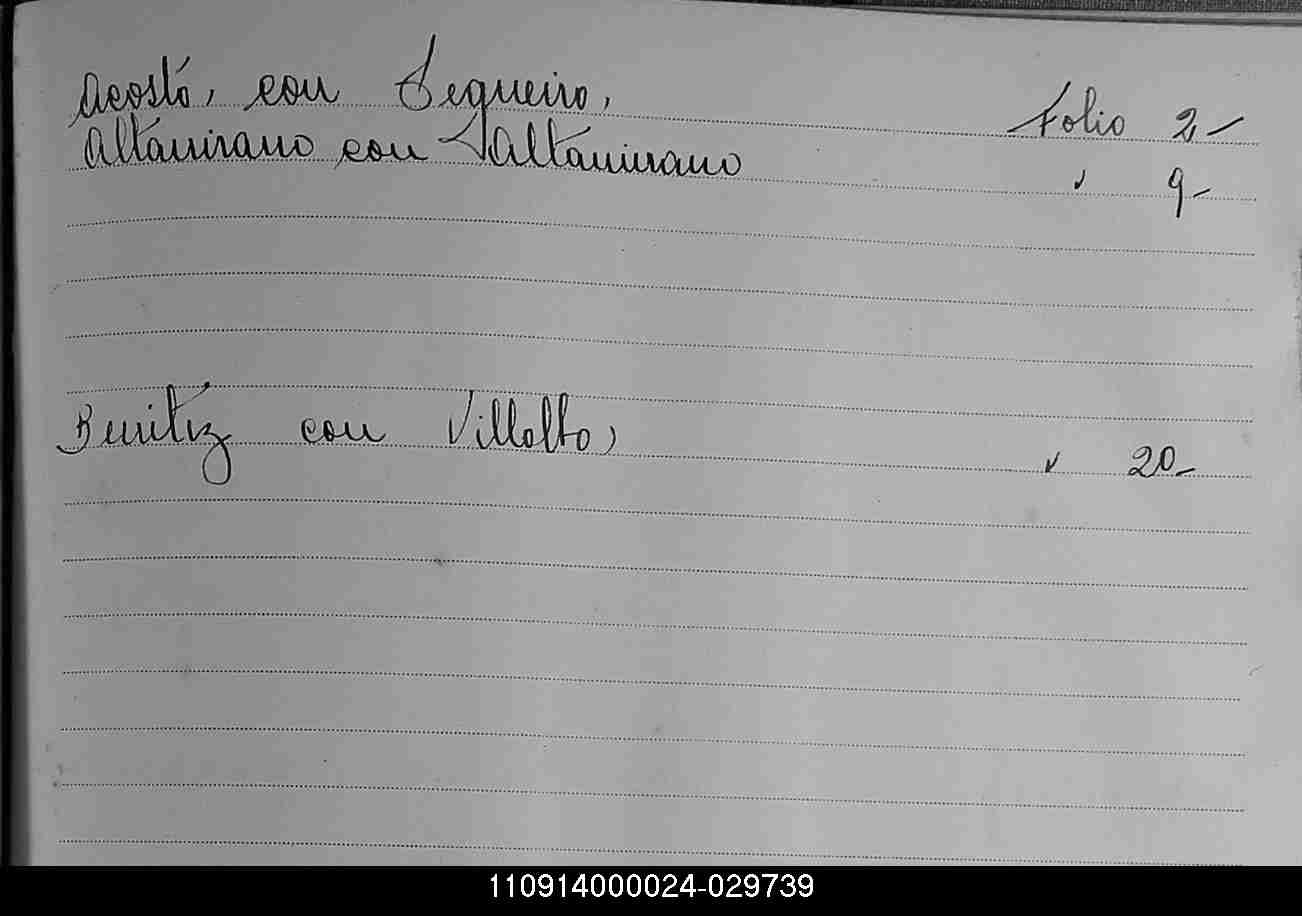 Acosta, con Sequeira, Folio 2-
Altamirano con Altamirano " 9-
Benitez con Villalba, " 20-
110914000024-029739